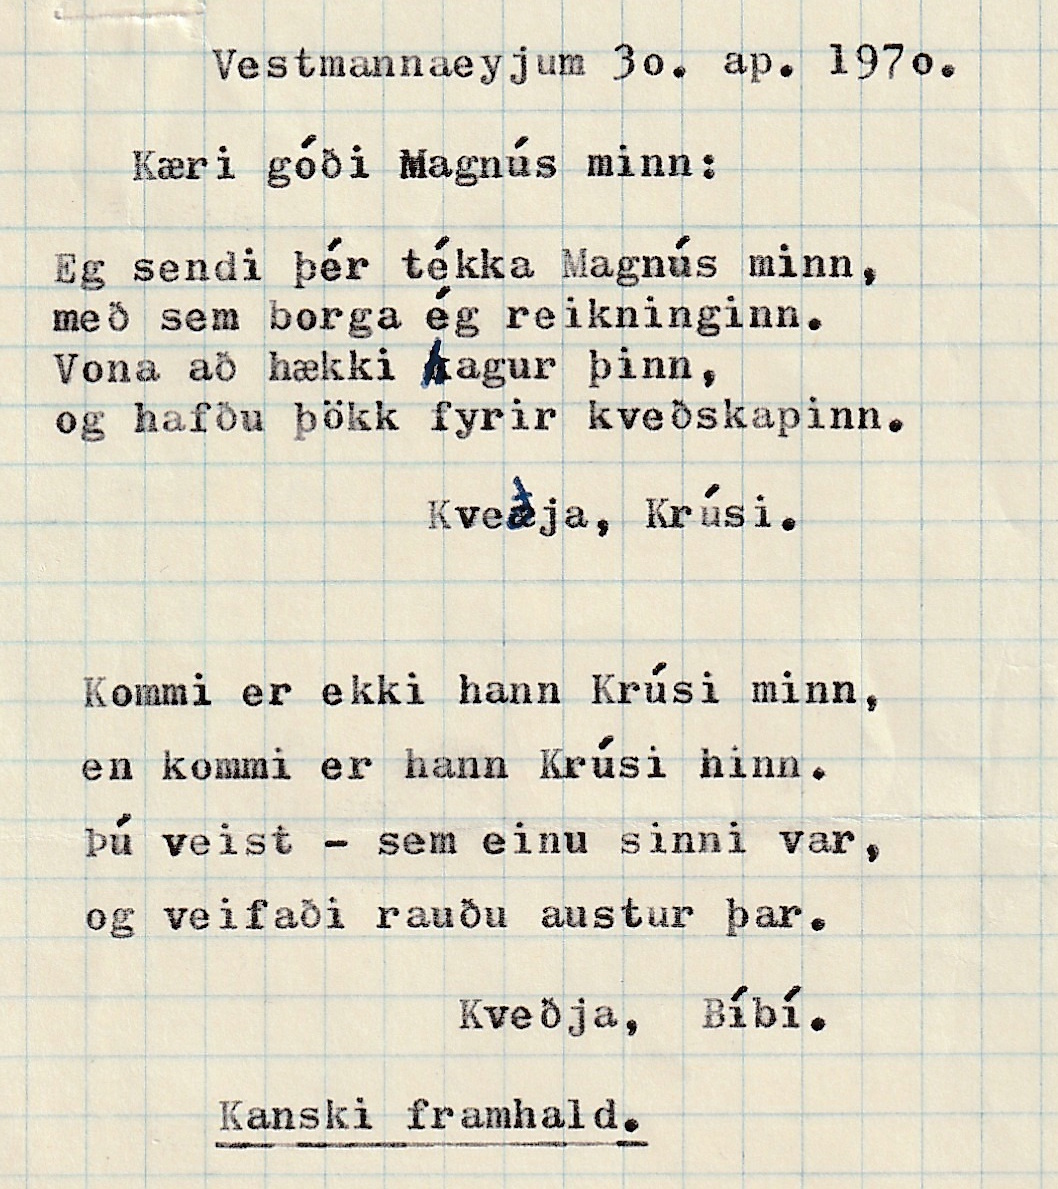 Vestmannaeyjum 3o. ap. 197o.
Kæri góði Magnús minn:
Eg sendi þér tékka Magnús minn,
með sem borga ég reikninginn.
Vona að hækki hagur þinn,
og hafðu þökk fyrir kveðskapinn.
Kveðja, Krúsi.
Kommi er ekki hann Krúsi minn,
en kommi er hann Krúsi hinn.
Þú veist - sem einu sinni var,
og veifaði rauðu austur þar.
Kveðja, Bíbí.
Kanski framhald.